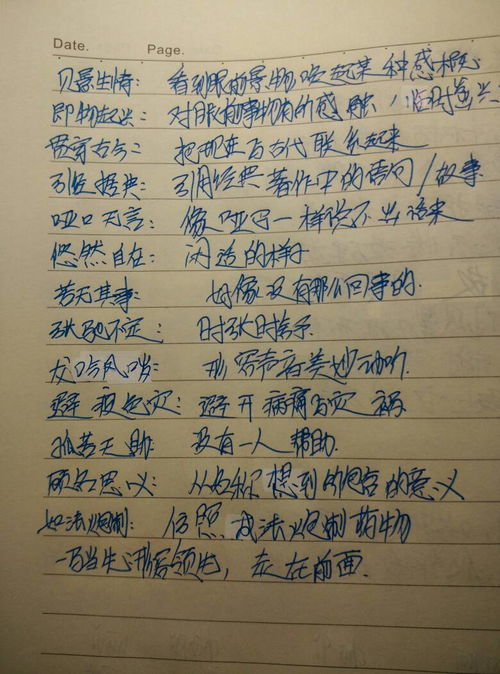 Date. Page.
见景生情: 看到眼前景物唤起某种感慨
即物起兴: 对眼前事物有所感触,临时逢兴
贯穿古今: 把现在与古代联系起来
引经据典: 引用经典著作中的语句/故事
哑口无言: 像哑巴一样说不出话来
悠然自在: 闲适的样子
若无其事: 好像没有那么回事的.
张弛不定: 时张时弛
龙吟凤哕: 形容声音美妙动听.
避疫免灾: 避开病痛与灾祸
孤苦无助: 没有一人帮助.
顾名思义: 从名称想到所包含的意义
如法炮制: 仿照成法炮制药物
一马当先:形容领先,走在前面.